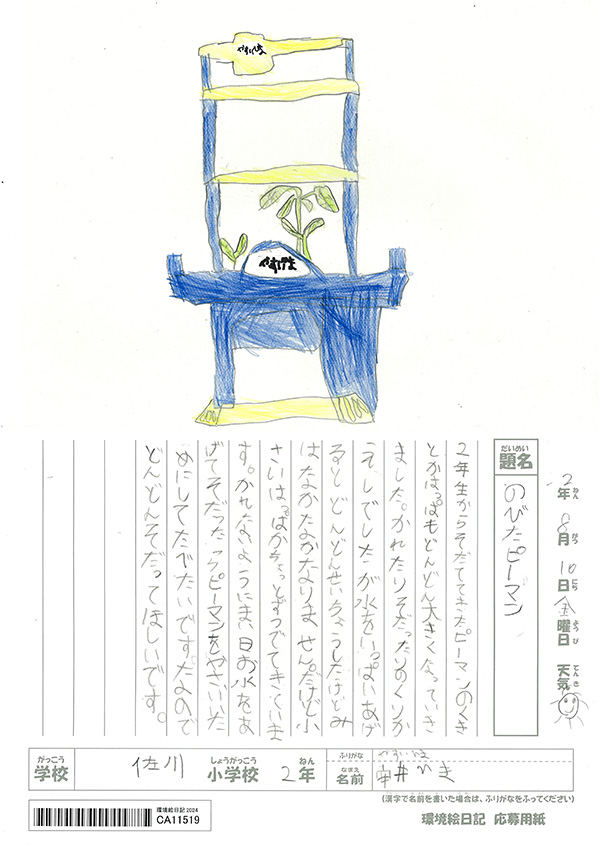 2年8月16日金曜日 天気
ねん がつ にち よう び てんき
だいめい
題名 のびたピーマン
2年生からそだててきたピーマンのくき
とかはっぱもどんどん大きくなっていき
ました。かれたりそだったりのくりか
えしでしたが水をいっぱいあげ
るとどんどんせいちょうしたけどみ
はなかなかなりません。だけど小
さいはっぱがちょっとずつでてきていま
す。かれないようにまい日お水をあ
げてそだったらピーマンをやさいいた
めにしてたべたいです。たなので
どんどんそだってほしいです。
がっこう しょうがっこう ねん ふりがな やすい
学校 佐川 小学校 2年
なまえ
名前 安井
(漢字で名前を書いた場合は、ふりがなをふってください)
環境絵日記2024
CA11519
環境絵日記 応募用紙